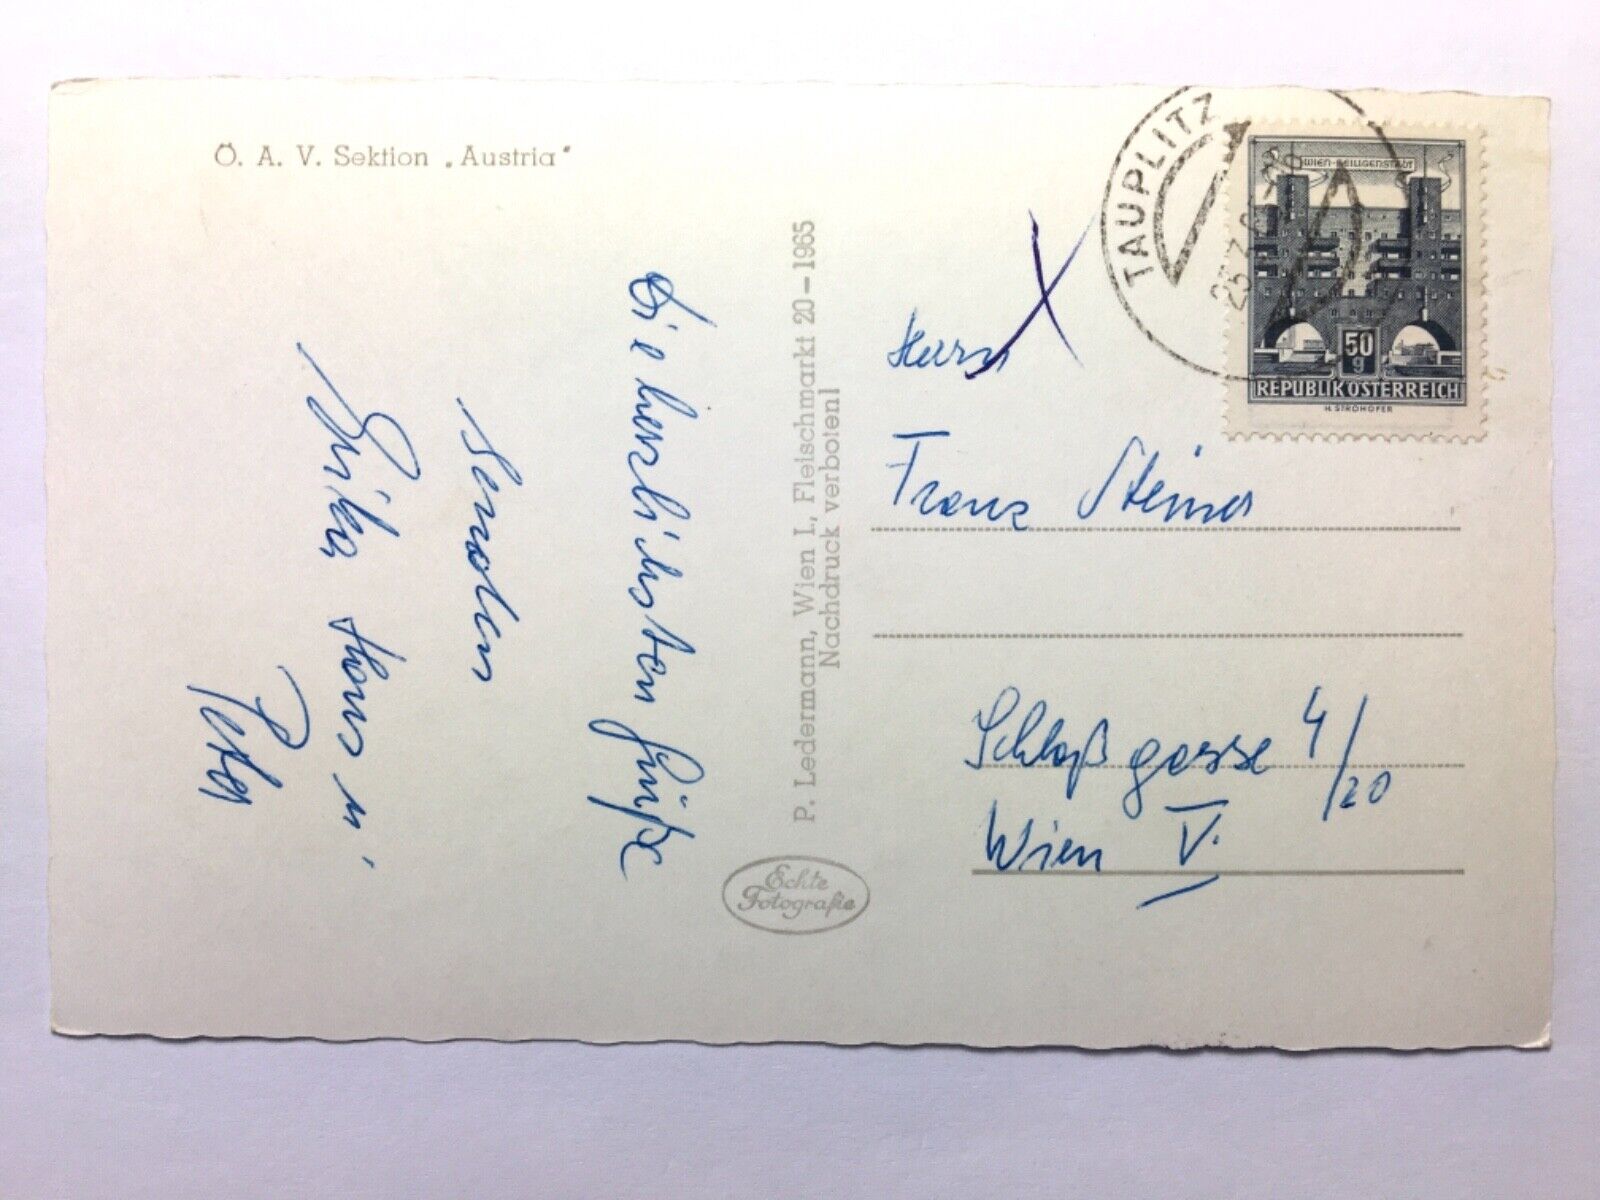 Ö. A. V. Sektion „Austria“
Die herzlichsten Grüße
senden
Erika, Hans u.
Peter
P. Ledermann, Wien I., Fleischmarkt 20 – 1965
Nachdruck verboten!
Echte
Fotografie
TAUPLITZ
WIEN-HEILIGENSTADT
50
g
REPUBLIK ÖSTERREICH
H. STROHOFER
Herrn
Franz Steiner
Schloßgasse 4/20
Wien V.